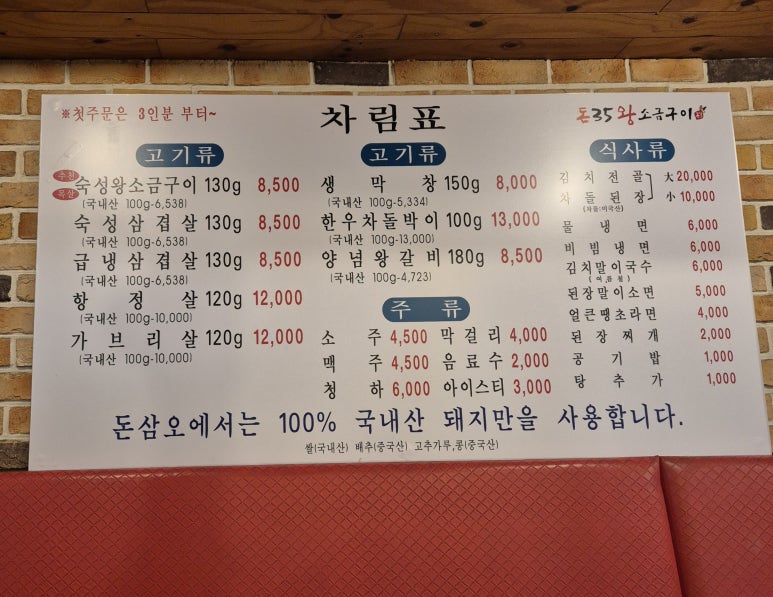 ※첫주문은 3인분 부터~
차림표
돈35왕소금구이
고기류
추천 숙성왕소금구이 130g 8,500
(국내산 100g-6,538)
숙성삼겹살 130g 8,500
(국내산 100g-6,538)
급냉삼겹살 130g 8,500
(국내산 100g-6,538)
항정살 120g 12,000
(국내산 100g-10,000)
가브리살 120g 12,000
(국내산 100g-10,000)
고기류
생막창 150g 8,000
(국내산 100g-5,334)
한우차돌박이 100g 13,000
(국내산 100g-13,000)
양념왕갈비 180g 8,500
(국내산 100g-4,723)
주류
소주 4,500 막걸리 4,000
맥주 4,500 음료수 2,000
청하 6,000 아이스티 3,000
식사류
김치전골 大 20,000
차돌된장 小 10,000
(차돌:미국산)
물냉면 6,000
비빔냉면 6,000
김치말이국수 6,000
(여름철)
된장말이소면 5,000
얼큰땡초라면 4,000
된장찌개 2,000
공기밥 1,000
탕추가 1,000
돈삼오에서는 100% 국내산 돼지만을 사용합니다.
쌀(국내산) 배추(중국산) 고추가루,콩(중국산)